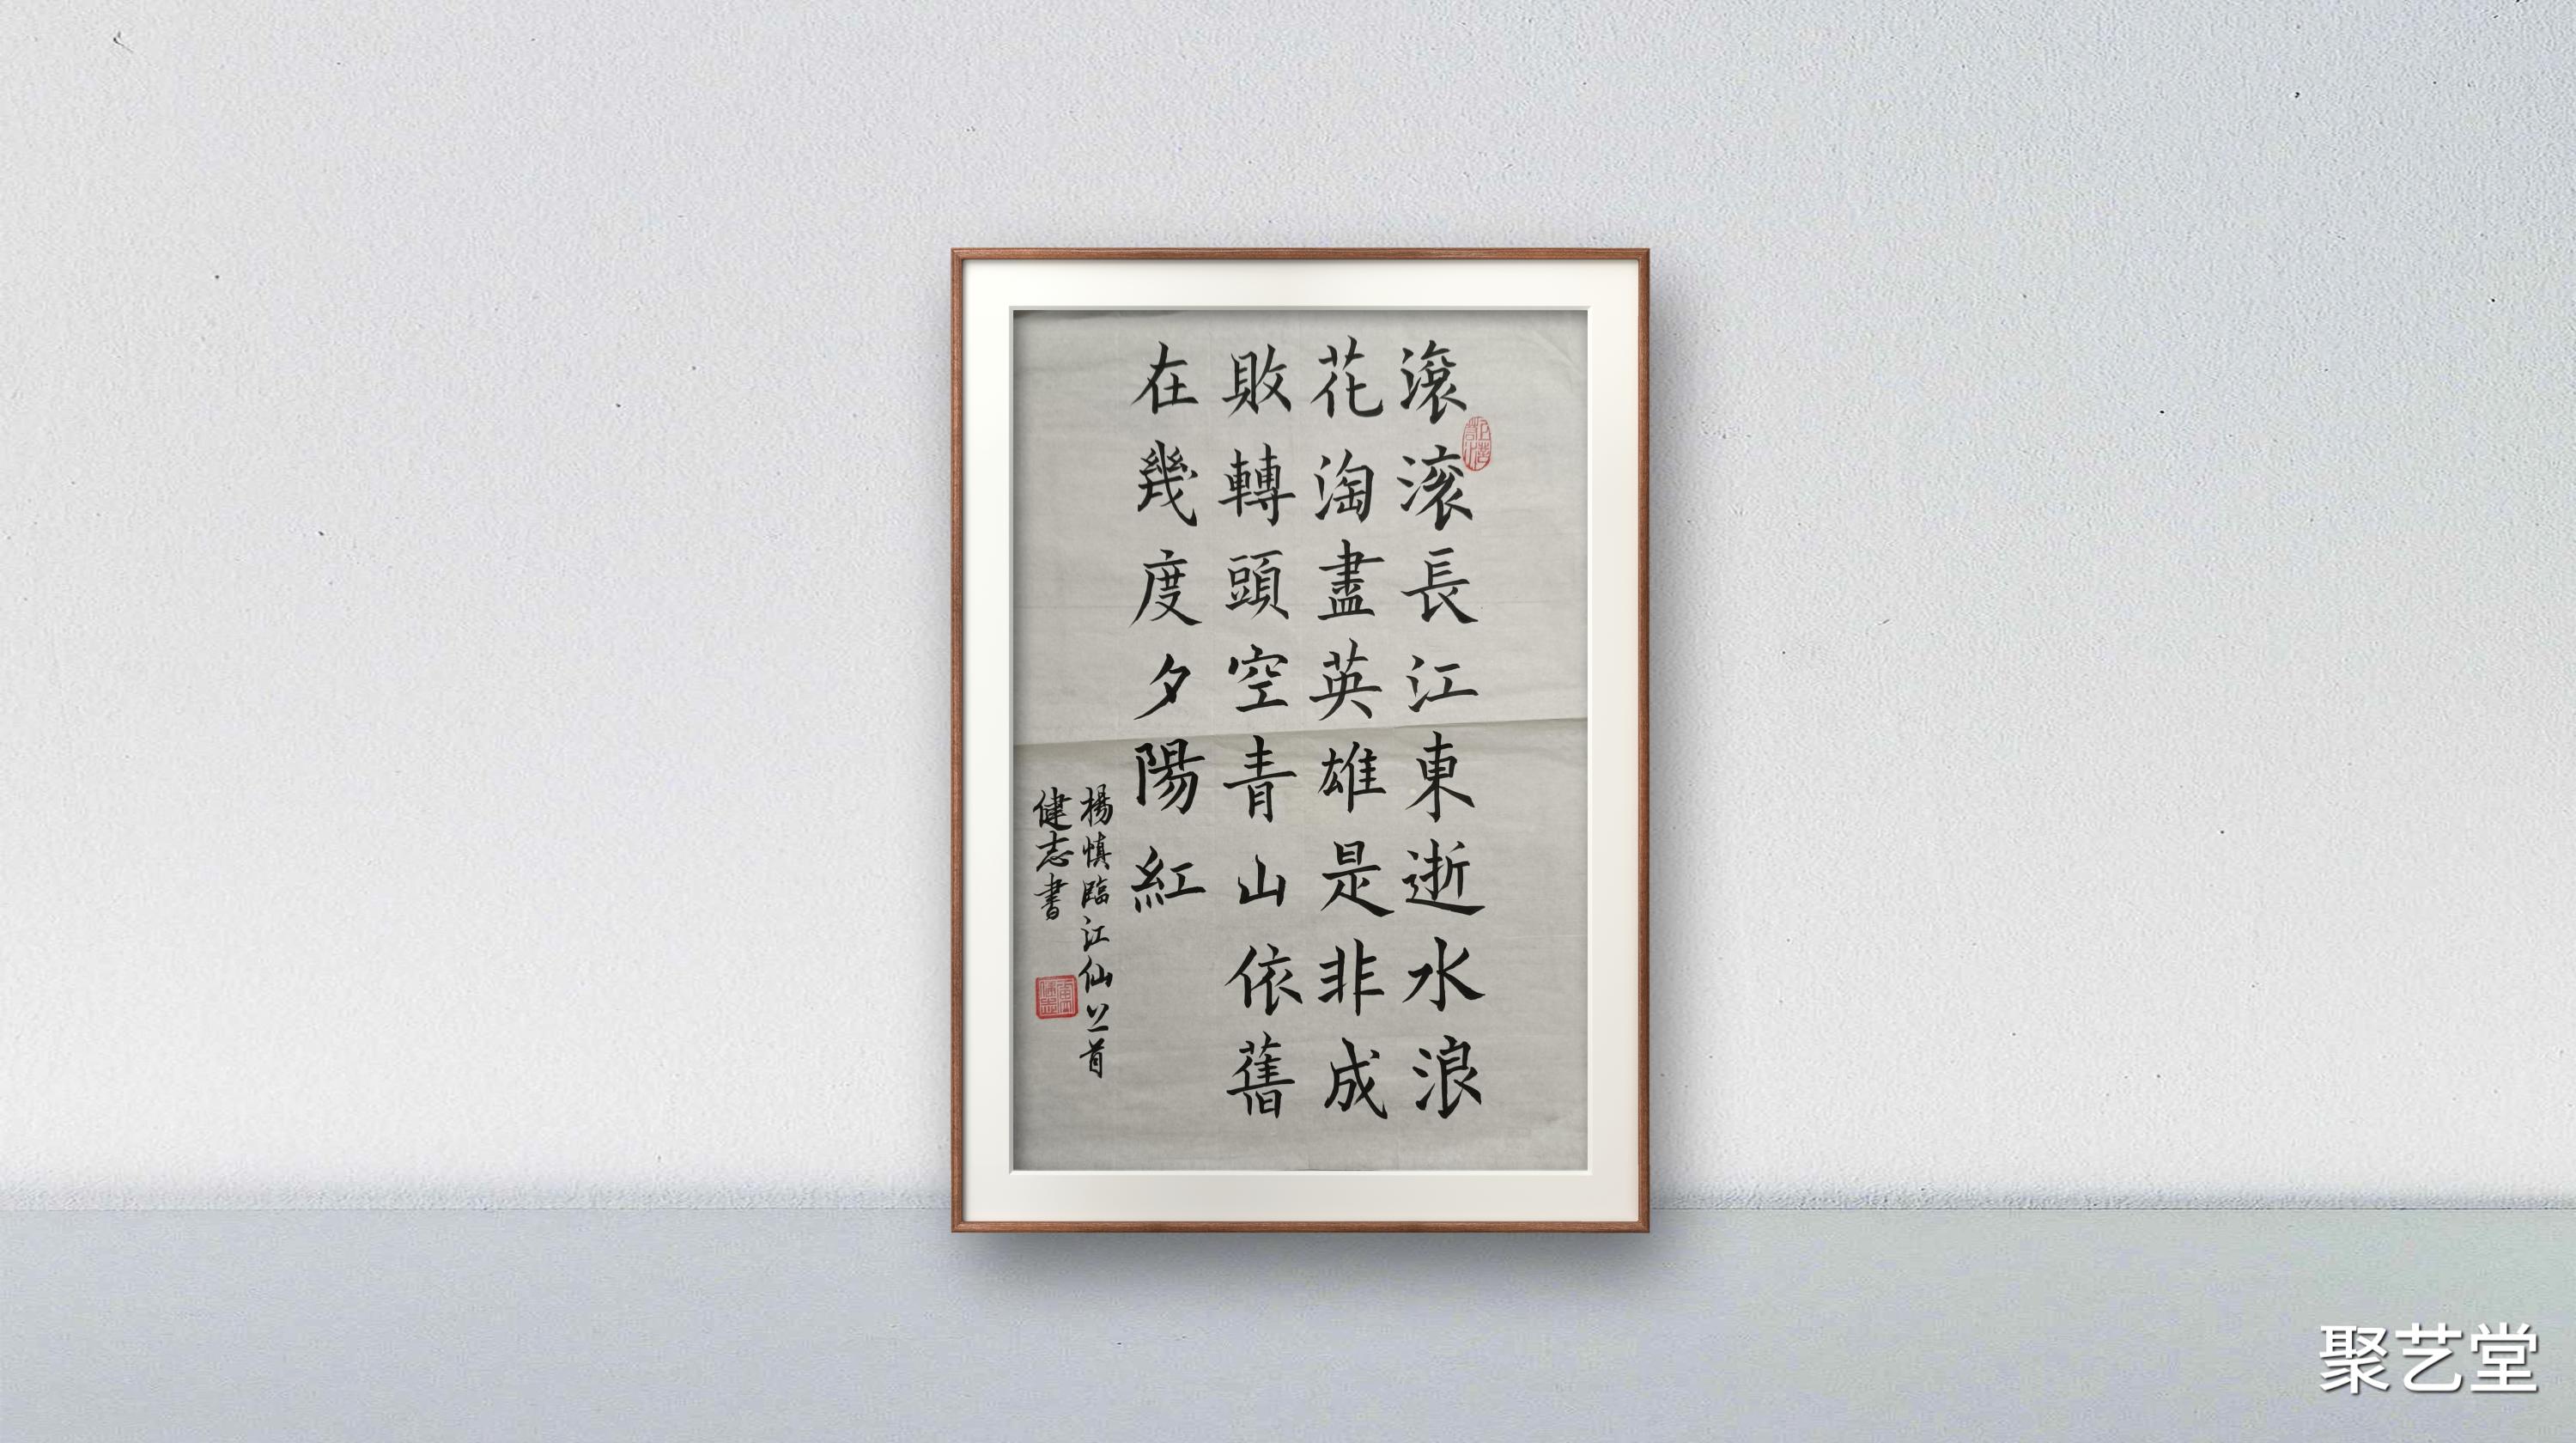 滾滚長江東逝水浪
花淘盡英雄是非成
敗轉頭空青山依舊
在幾度夕陽紅
楊慎臨江仙一首
健志書
聚艺堂